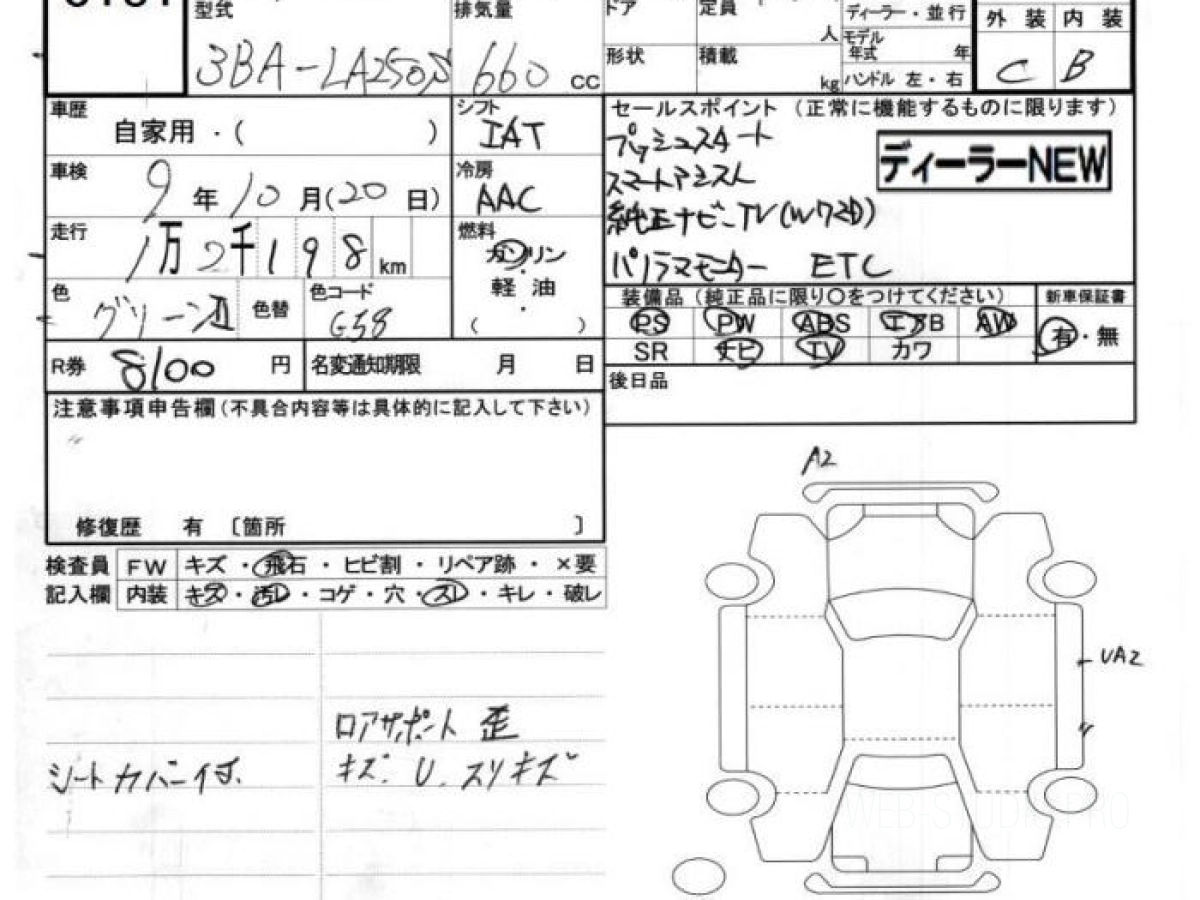 型式 排気量 ドア 定員 人 ディーラー・並行 外装 内装
3BA-LA250S 660 cc 形状 積載 kg モデル年式 年 C B
ハンドル 左・右
車歴 自家用・( ) シフト IAT セールスポイント (正常に機能するものに限ります)
プッシュスタート ディーラーNEW
車検 9年10月(20日) 冷房 AAC スマートアシスト
純正ナビ-TV(W72D)
走行 1万2千198km 燃料 ガソリン・軽油・( ) パノラマモニター ETC
色 グリーンII 色替 色コード G58 装備品 (純正品に限り○をつけてください) 新車保証書
PS PW ABS エアB AW 有・無
R券 8100円 名変通知期限 月 日 SR ナビ TV カワ
後日品
注意事項申告欄(不具合内容等は具体的に記入して下さい)
修復歴 有 〔箇所 〕
A2
検査員 FW キズ・飛石・ヒビ割・リペア跡・×要
記入欄 内装 キズ・汚レ・コゲ・穴・スレ・キレ・破レ
UA2
ロアサポート 歪
シートカバー付. キズ. U. スリキズ
WEB-STUDIO PRO